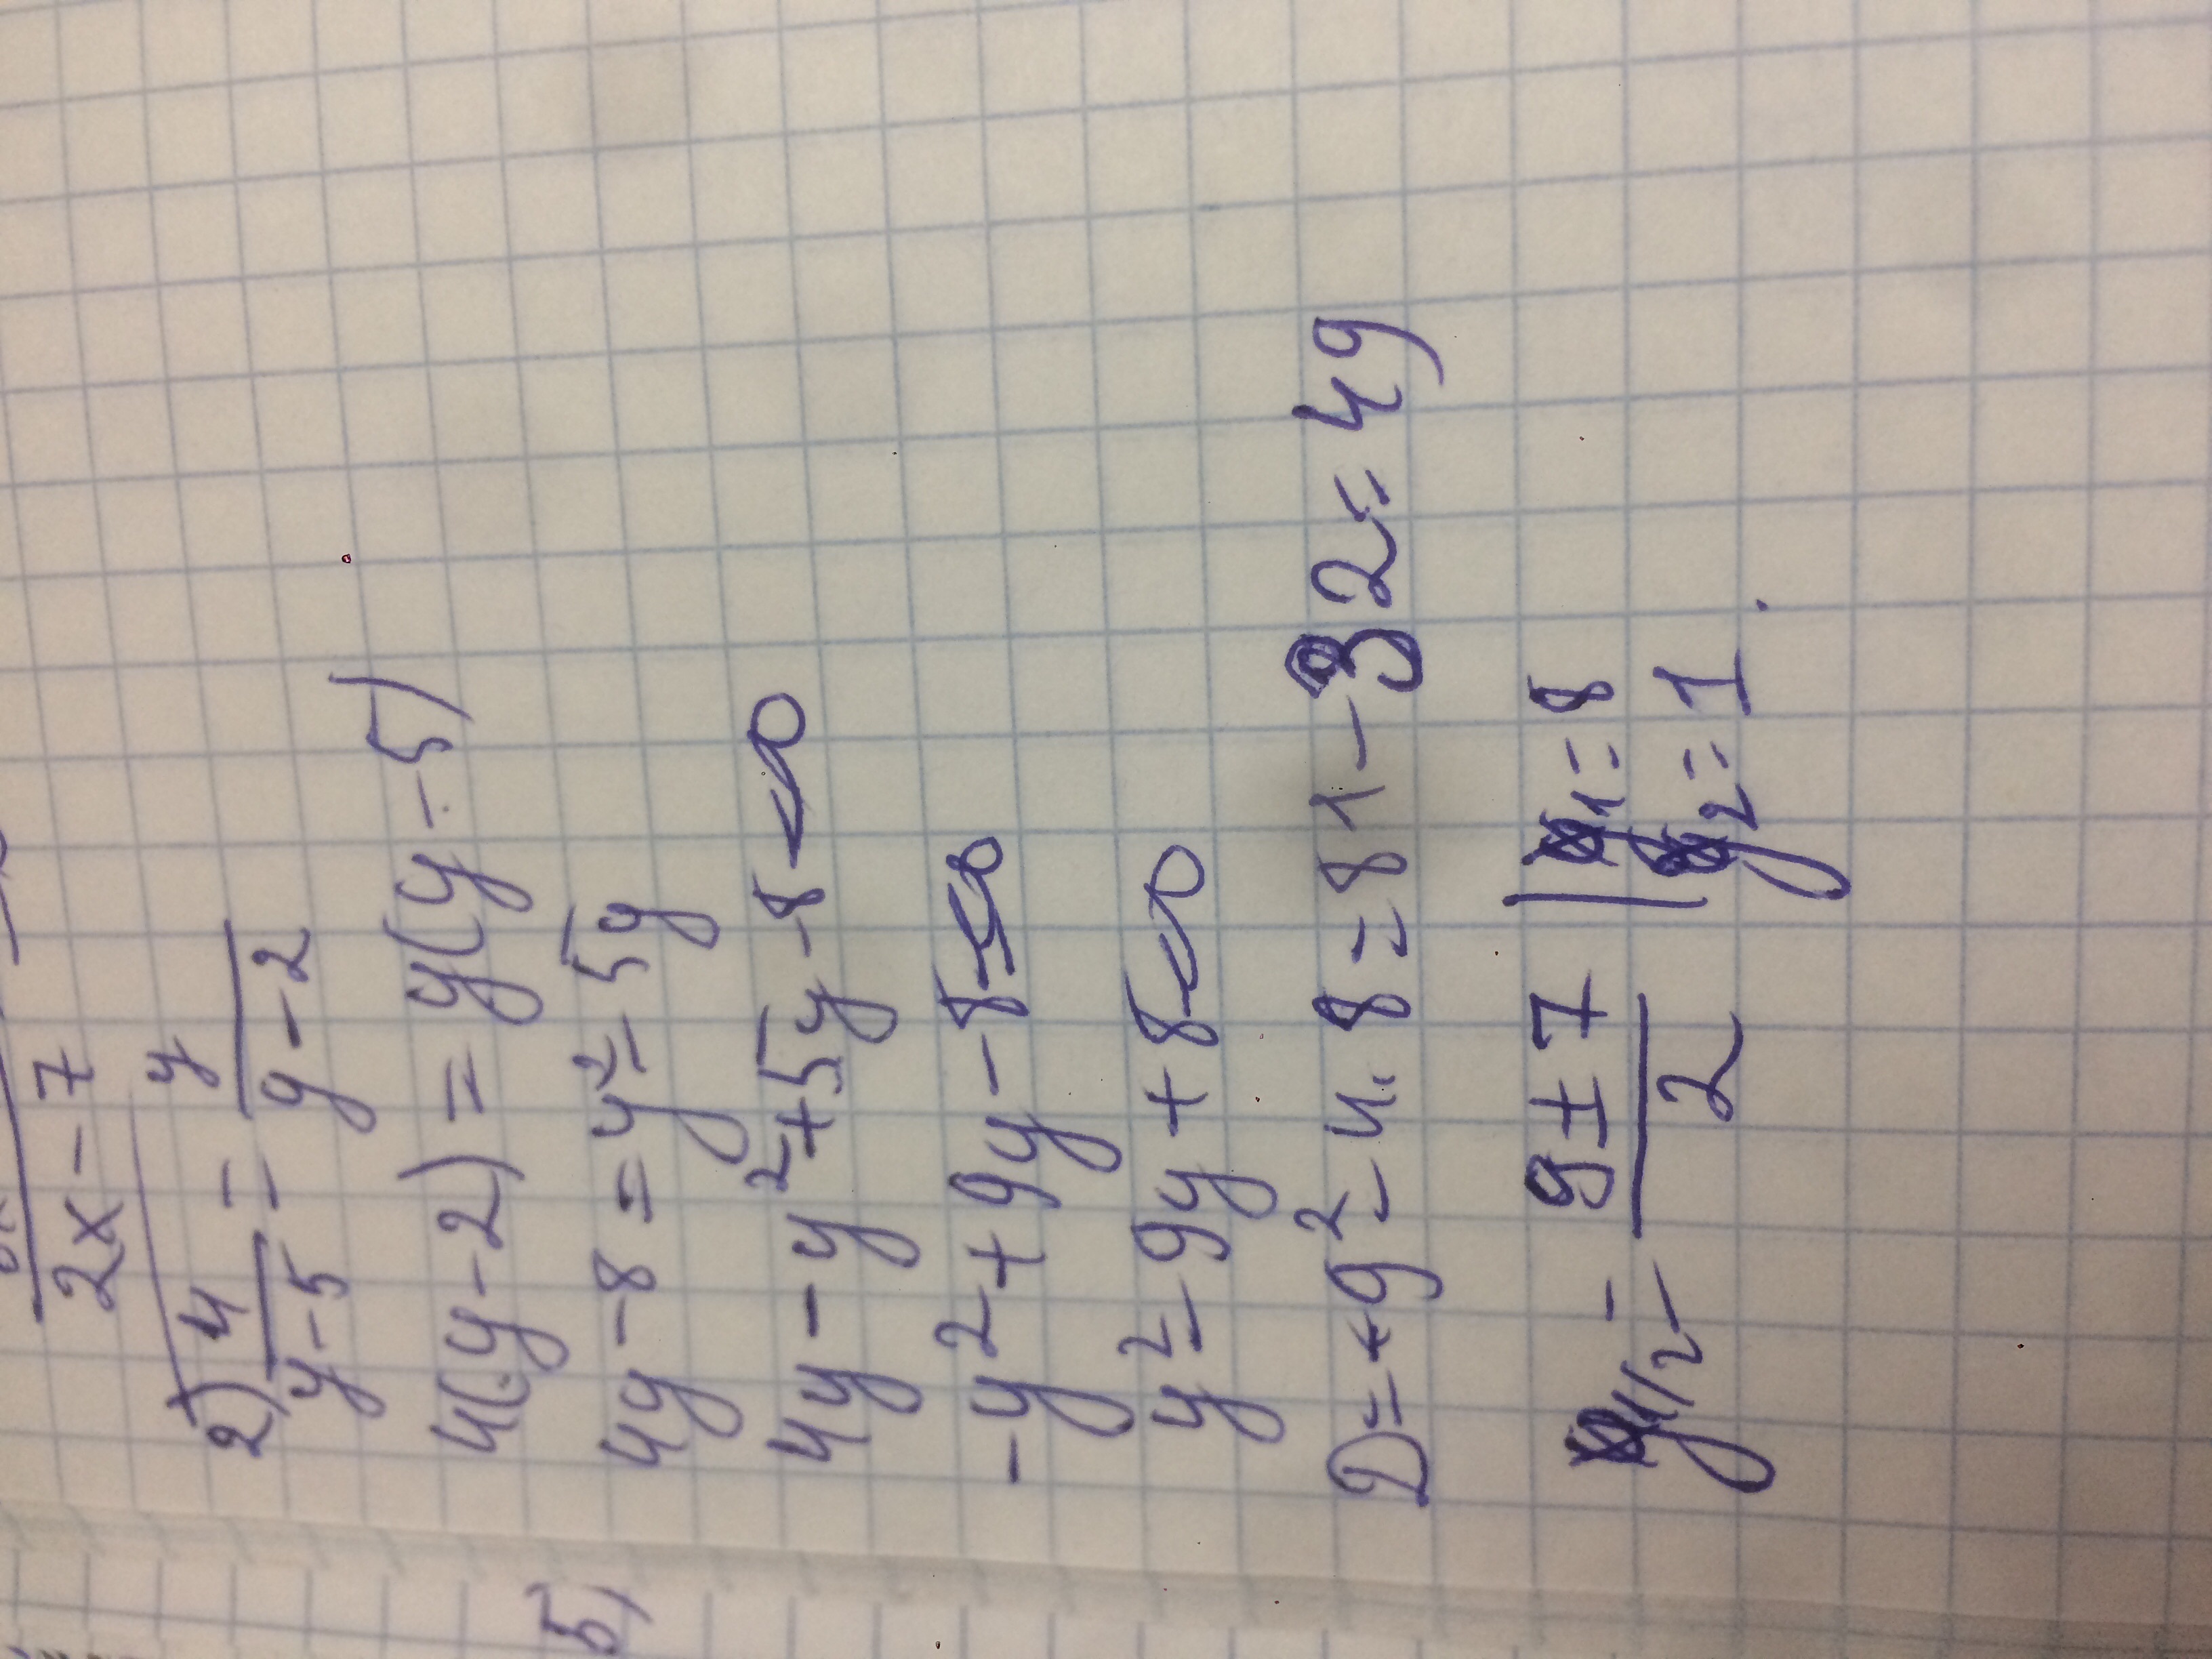 2x-7
2) 4/(y-5) = y/(y-2)
4(y-2) = y(y-5)
4y-8 = y²-5y
4y - y² + 5y - 8 = 0
-y² + 9y - 8 = 0
y² - 9y + 8 = 0
D = +9² - 4·8 = 81 - 32 = 49
y1/2 = (9 ± 7)/2 | y1 = 8
y2 = 1.
5)